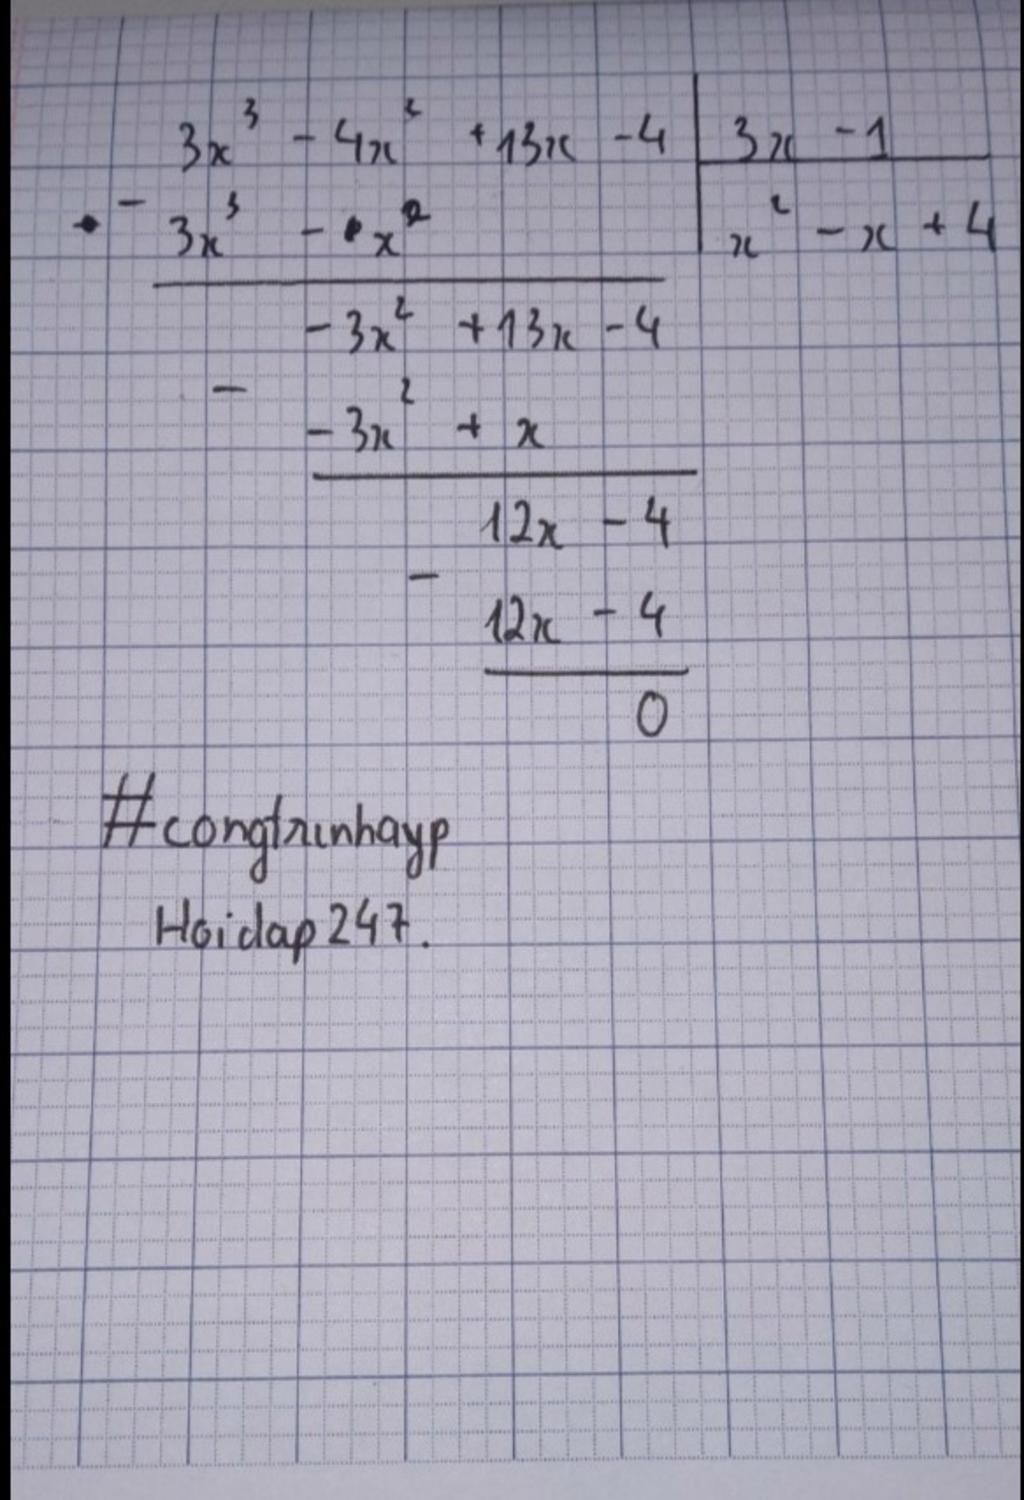 3x³ - 4x² + 13x - 4 | 3x - 1
- 3x³ - x² | x² - x + 4
-3x² + 13x - 4
-
-3x² + x
12x - 4
-
12x - 4
0
#congtrinhayp
Hoidap247.